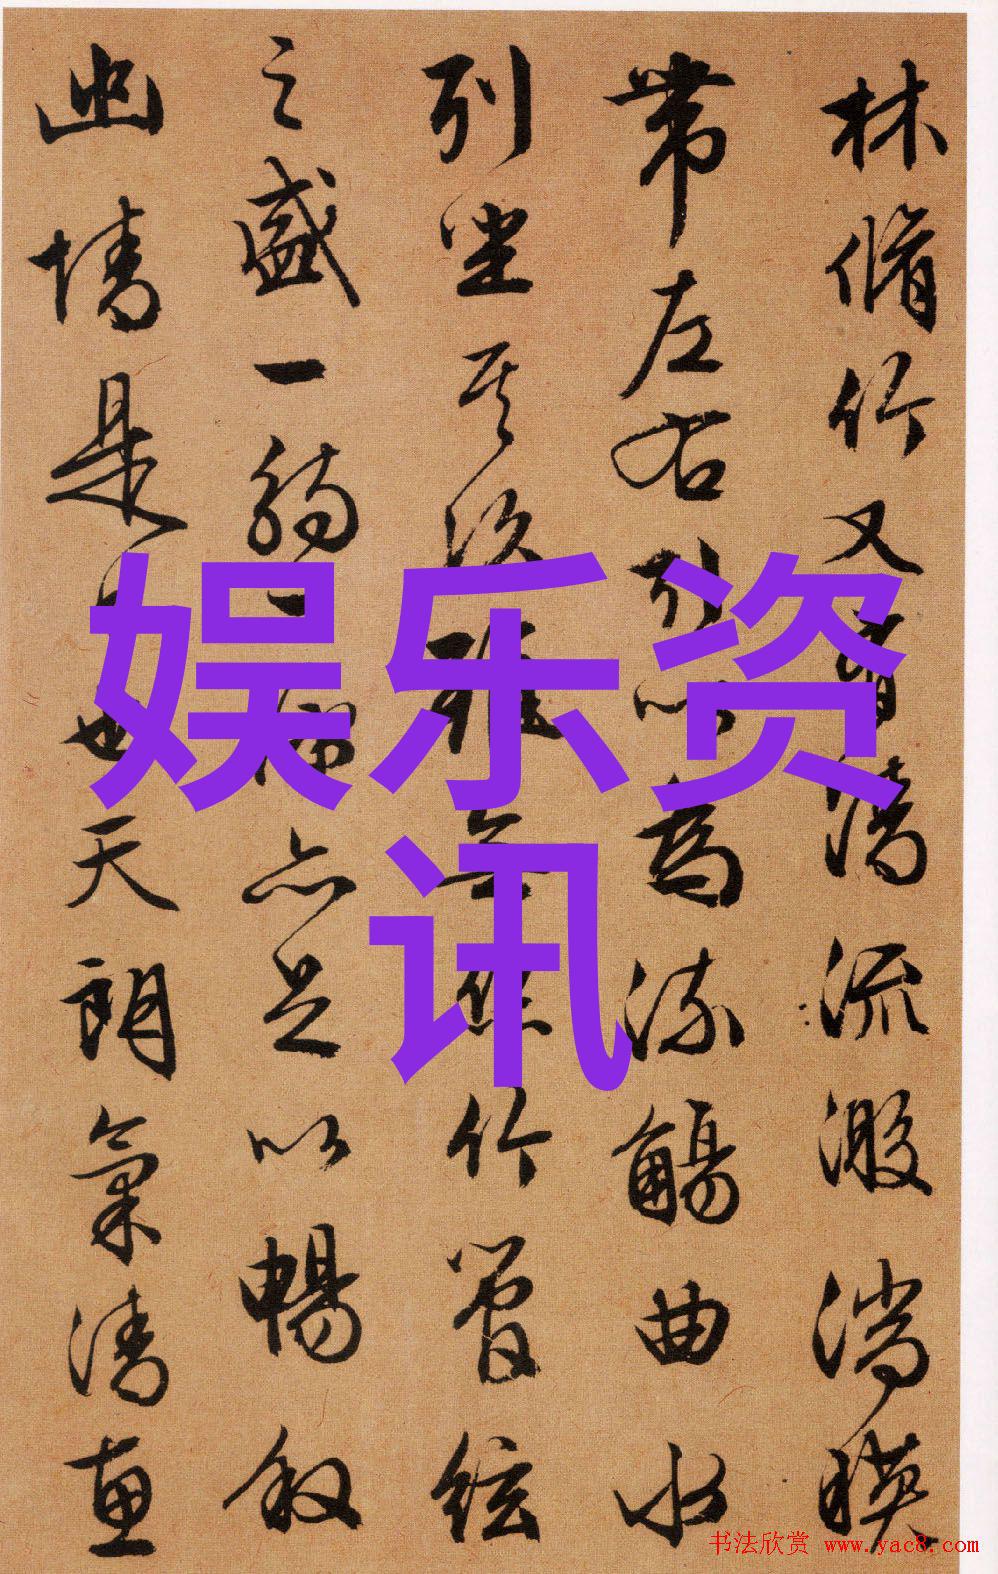 林脩竹又有清流激湍暎
帶左右引以為流觴曲水
列坐其次雖無絲竹管絃
之盛一觴一詠亦足以暢敘
幽情是日也天朗氣清惠
娱乐资
讯
书法欣赏 www.yac8.com